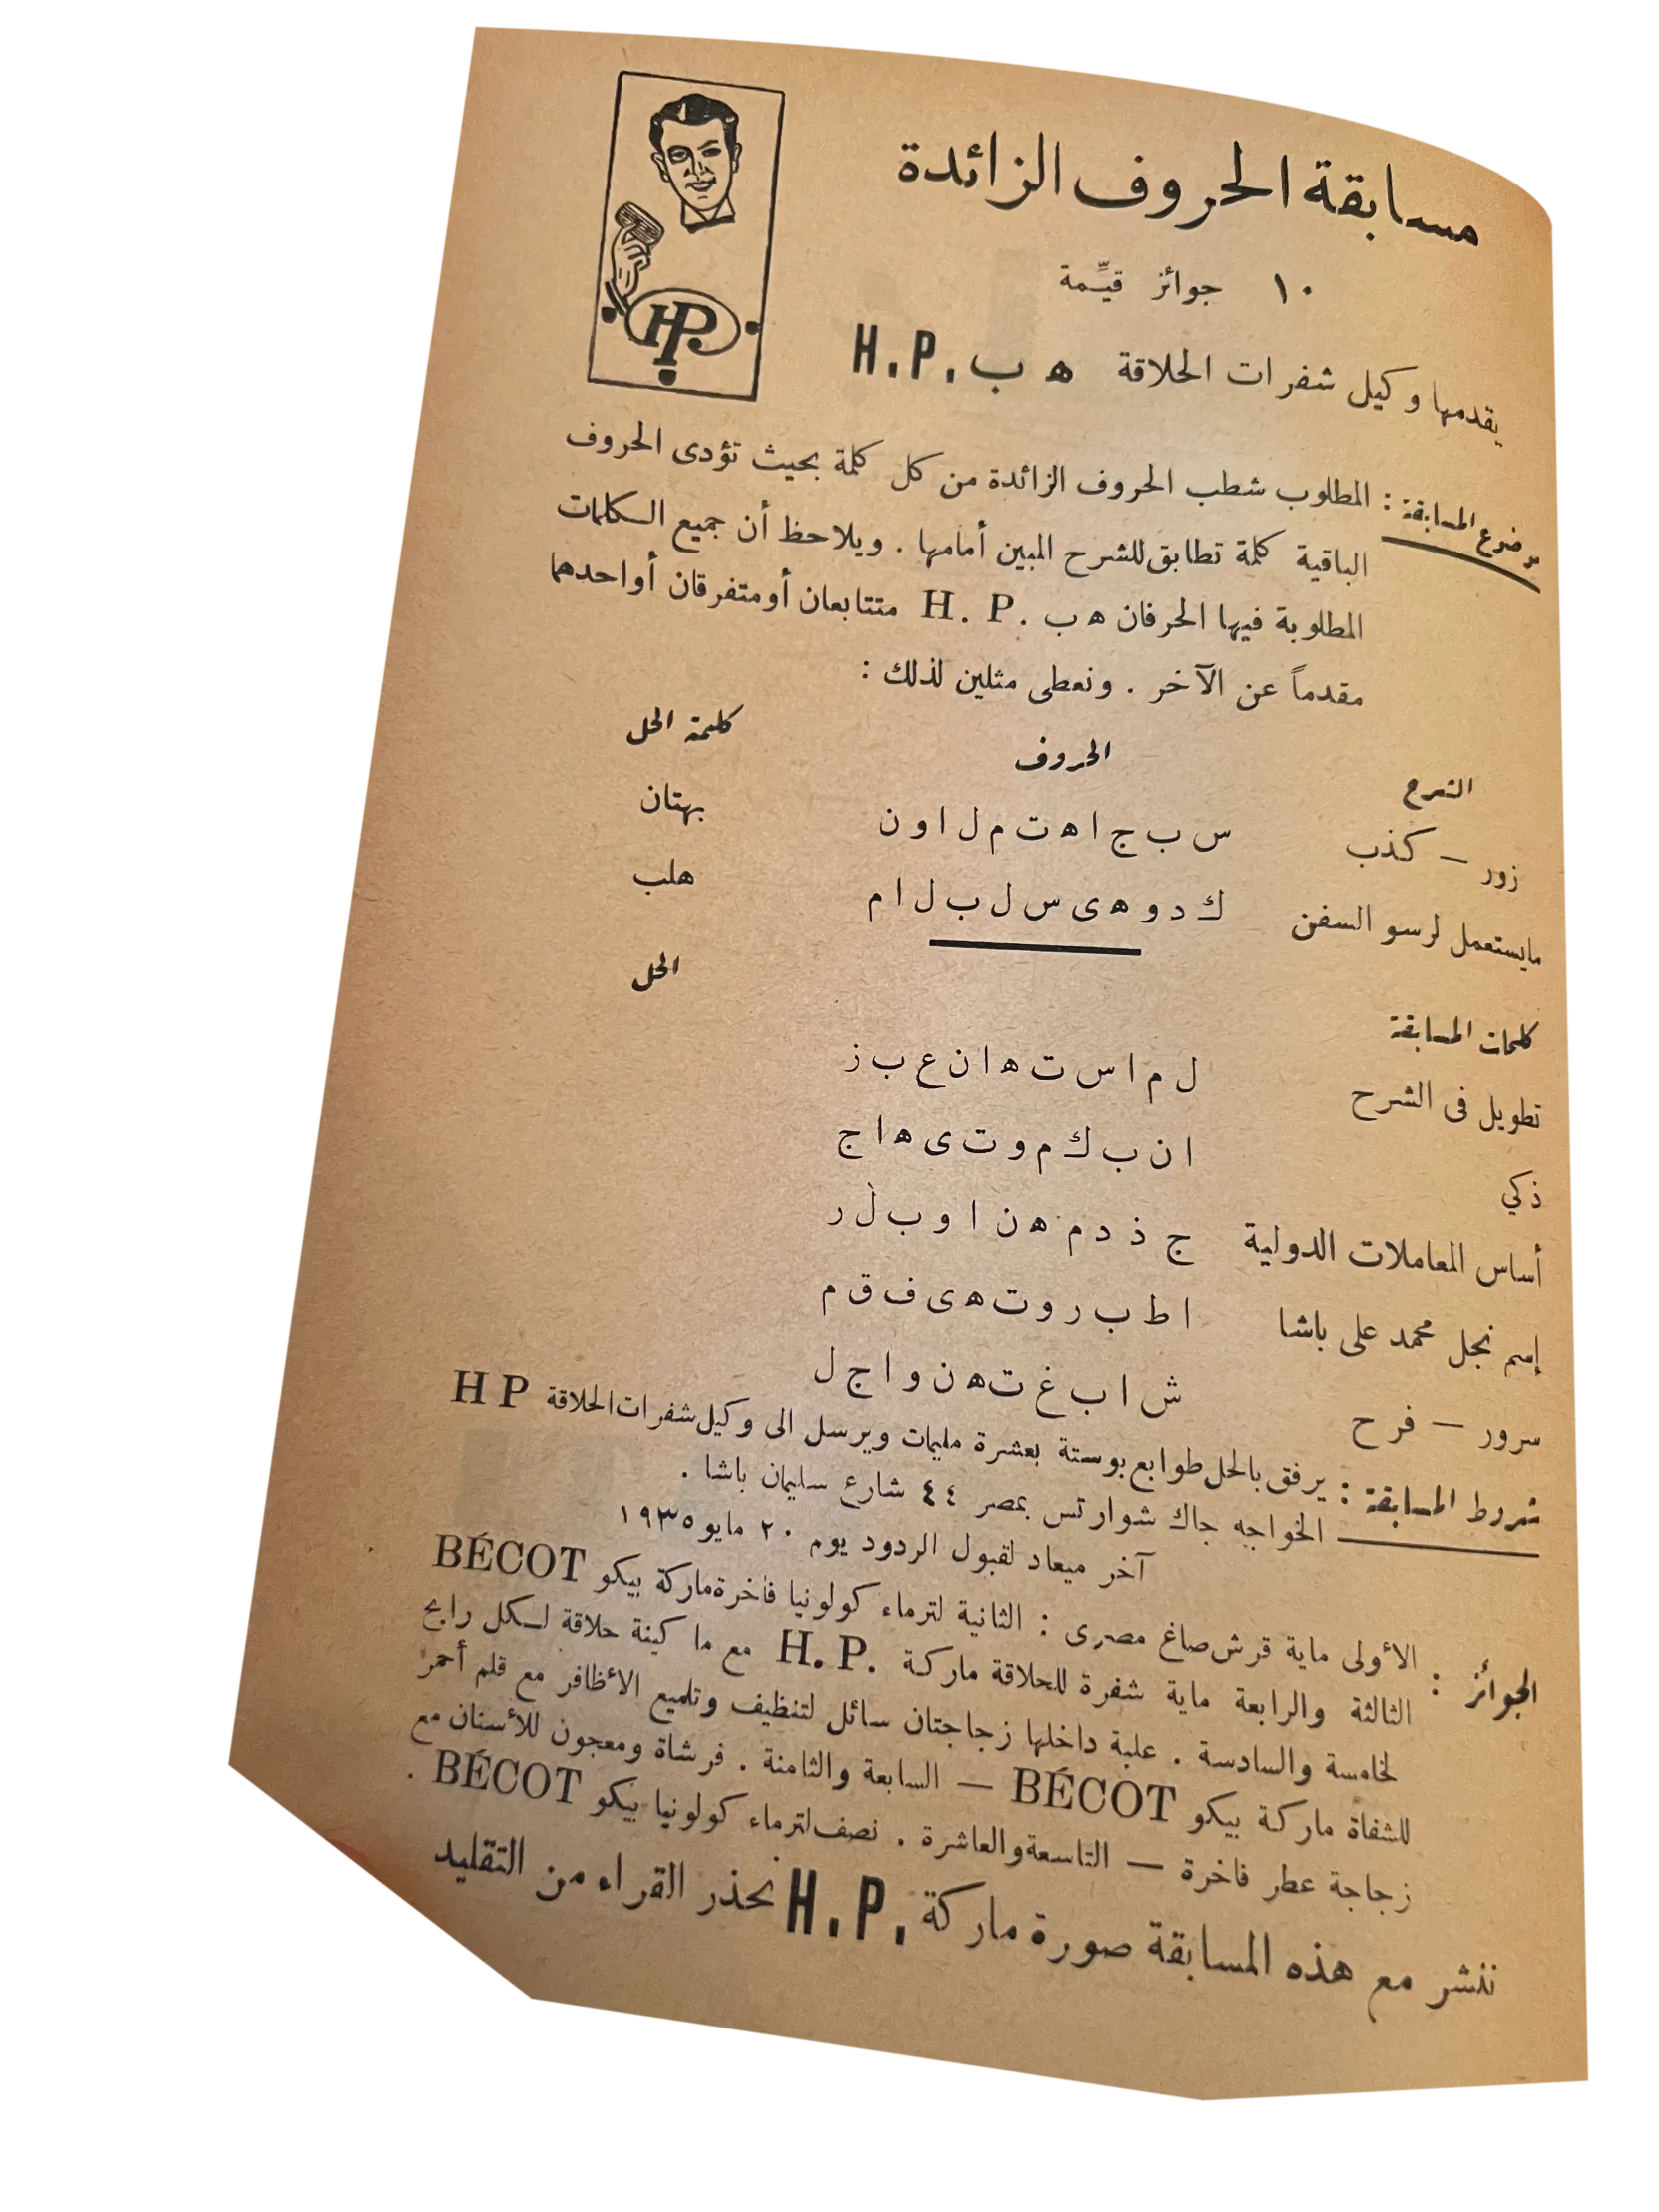 مسابقة الحروف الزائدة
١٠ جوائز قيِّمة
يقدمها وكيل شفرات الحلاقة ه ب .H.P
HP
موضوع المسابقة : المطلوب شطب الحروف الزائدة من كل كلمة بحيث تؤدى الحروف
الباقية كلمة تطابق للشرح المبين أمامها . ويلاحظ أن جميع الكلمات
المطلوبة فيها الحرفان ه ب .H. P متتابعان أو متفرقان أو احدهما
مقدماً عن الآخر . ونعطى مثلين لذلك :
الشرح الحروف كلمة الحل
زور — كذب س ب ج ا ه ت م ل ا و ن بهتان
مايستعمل لرسو السفن ك د و ه ى س ل ب ل ا م هلب
كلمات المسابقة الحل
تطويل فى الشرح ل م ا س ت ه ا ن ع ب ز
ذكي ا ن ب ك م و ت ى ه ا ج
أساس المعاملات الدولية ج ذ د م ه ن ا و ب ل ر
إسم نجل محمد على باشا ا ط ب ر و ت ه ى ف ق م
سرور — فرح ش ا ب غ ت ه ن و ا ج ل
شروط المسابقة : يرفق بالحل طوابع بوستة بعشرة مليمات ويرسل الى وكيل شفرات الحلاقة H P
الخواجه جاك شوارتس بمصر ٤٤ شارع سليمان باشا .
آخر ميعاد لقبول الردود يوم ٢٠ مايو ١٩٣٥
الجوائز : الأولى ماية قرش صاغ مصرى : الثانية لترماء كولونيا فاخرة ماركة بيكو BÉCOT
الثالثة والرابعة ماية شفرة للحلاقة ماركة .H.P مع ما كينة حلاقة لكل رابح
لخامسة والسادسة . علبة داخلها زجاجتان سائل لتنظيف وتلميع الأظافر مع قلم أحمر
للشفاة ماركة بيكو BÉCOT — السابعة والثامنة . فرشاة ومعجون للأسنان مع
زجاجة عطر فاخرة — التاسعة والعاشرة . نصف لترماء كولونيا بيكو BÉCOT .
ننشر مع هذه المسابقة صورة ماركة .H.P نحذر القراء من التقليد